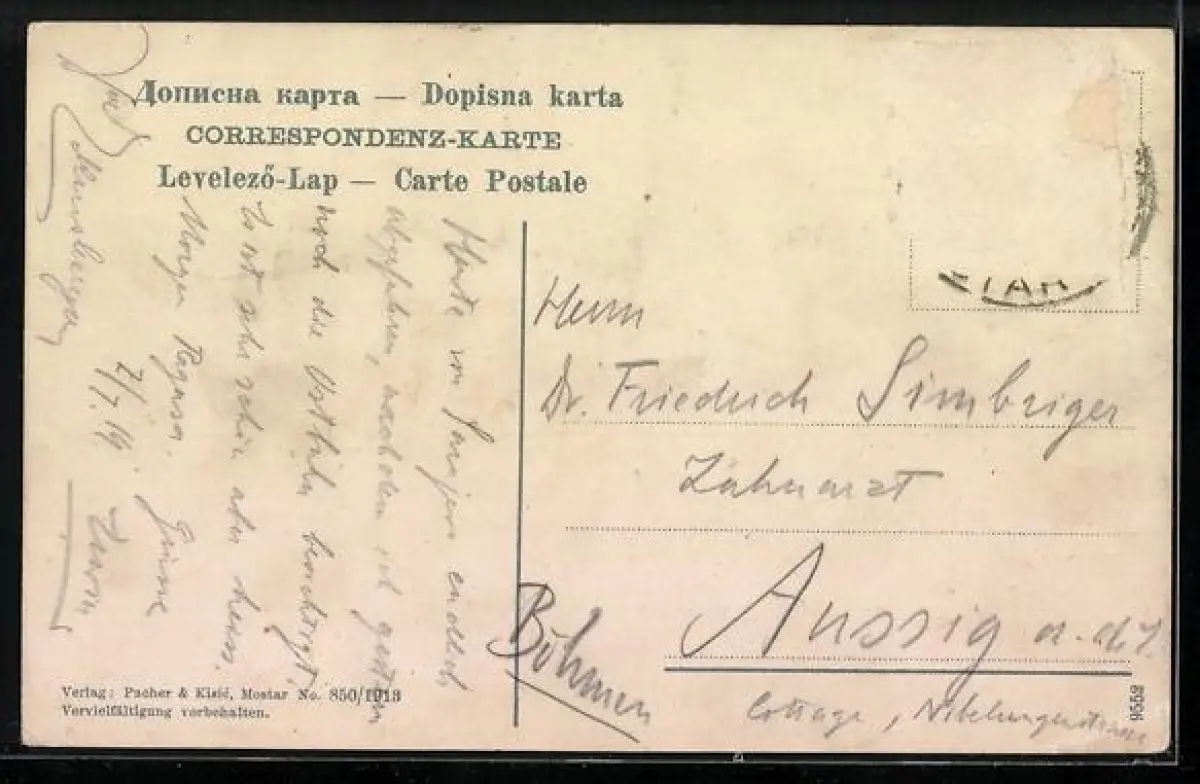 Дописна карта — Dopisna karta
CORRESPONDENZ-KARTE
Levelező-Lap — Carte Postale
Heute von Sarajevo endlich
abgefahren, nachdem ich gestern
noch die Ostbahn besichtigt.
Es ist sehr schön aber heiss.
Morgen Ragusa. Grüsse
7/7. 14.
Herrn
Dr. Friedrich Simbriger
Zahnarzt
Aussig a. d. E.
Böhmen
Cottage, Nibelungenstrasse
Verlag: Pacher & Kisić, Mostar No. 850/1913
Vervielfältigung vorbehalten.
9552